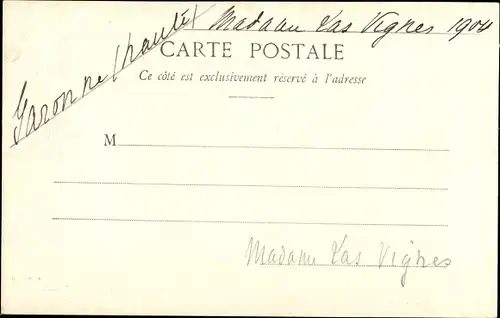 Madame Las Vignes 1904
Garonne (haute)
CARTE POSTALE
Ce côté est exclusivement réservé à l'adresse
M
Madame Las Vignes